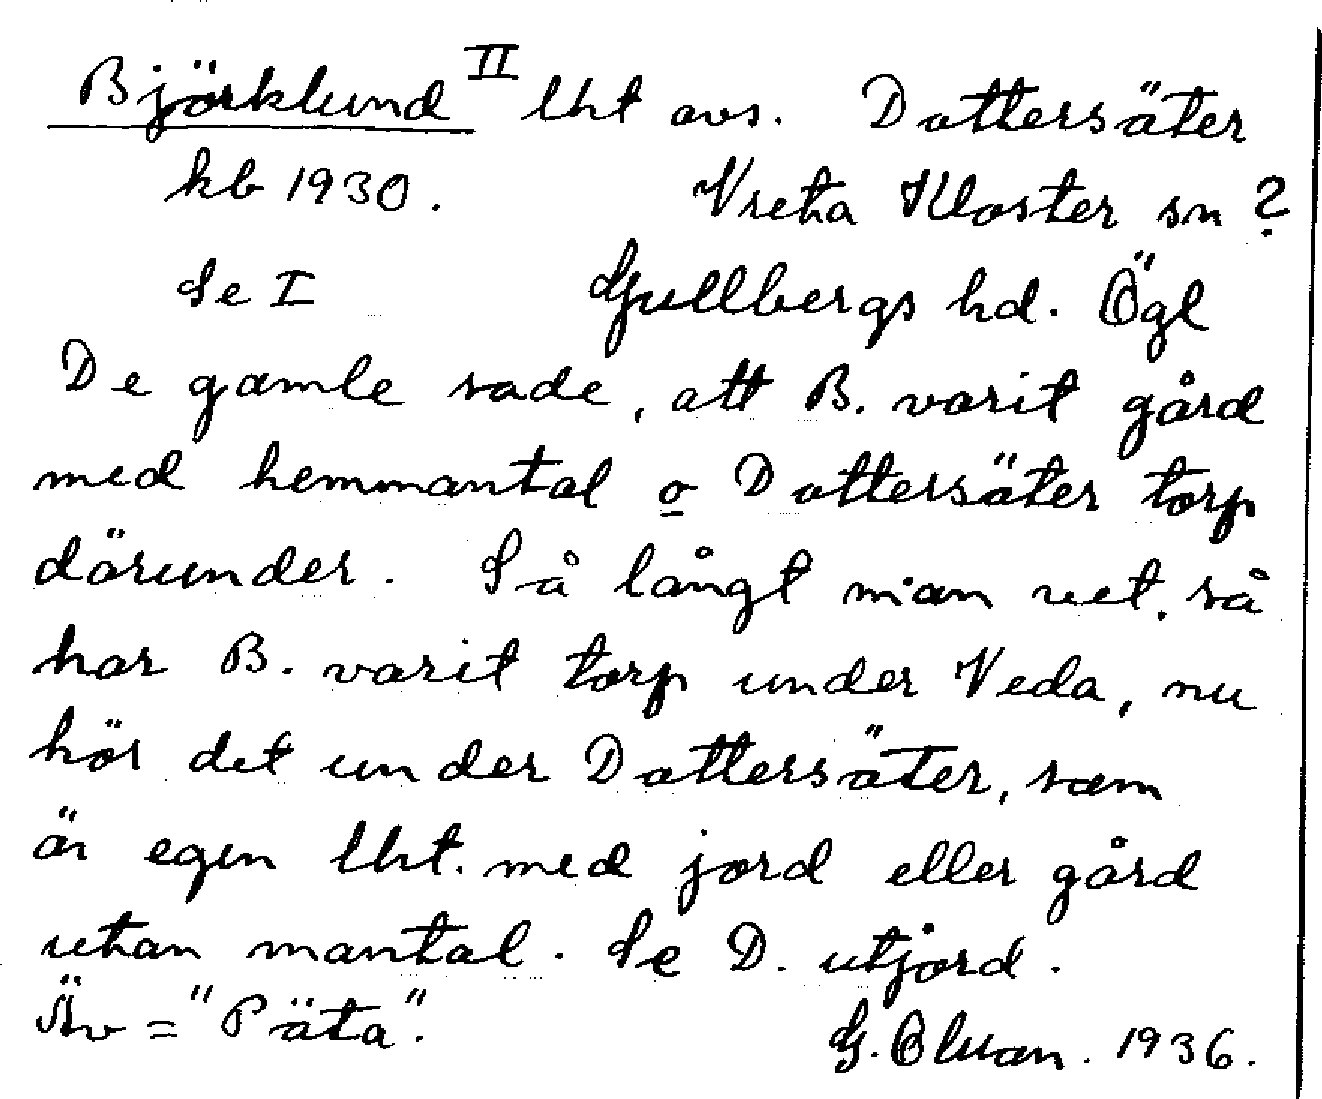 Björklund II lht avs. Dottersäter
kb 1930. Vreta Kloster sn ?
Se I Gullbergs hd. Ögl
De gamle sade, att B. varit gård
med hemmantal o Dottersäter torp
därunder. Så långt man vet, så
har B. varit torp under Veda, nu
hör det under Dottersäter, som
är egen lht. med jord eller gård
utan mantal. Se D. utjord.
Äv = "Päta".
G. 1936.